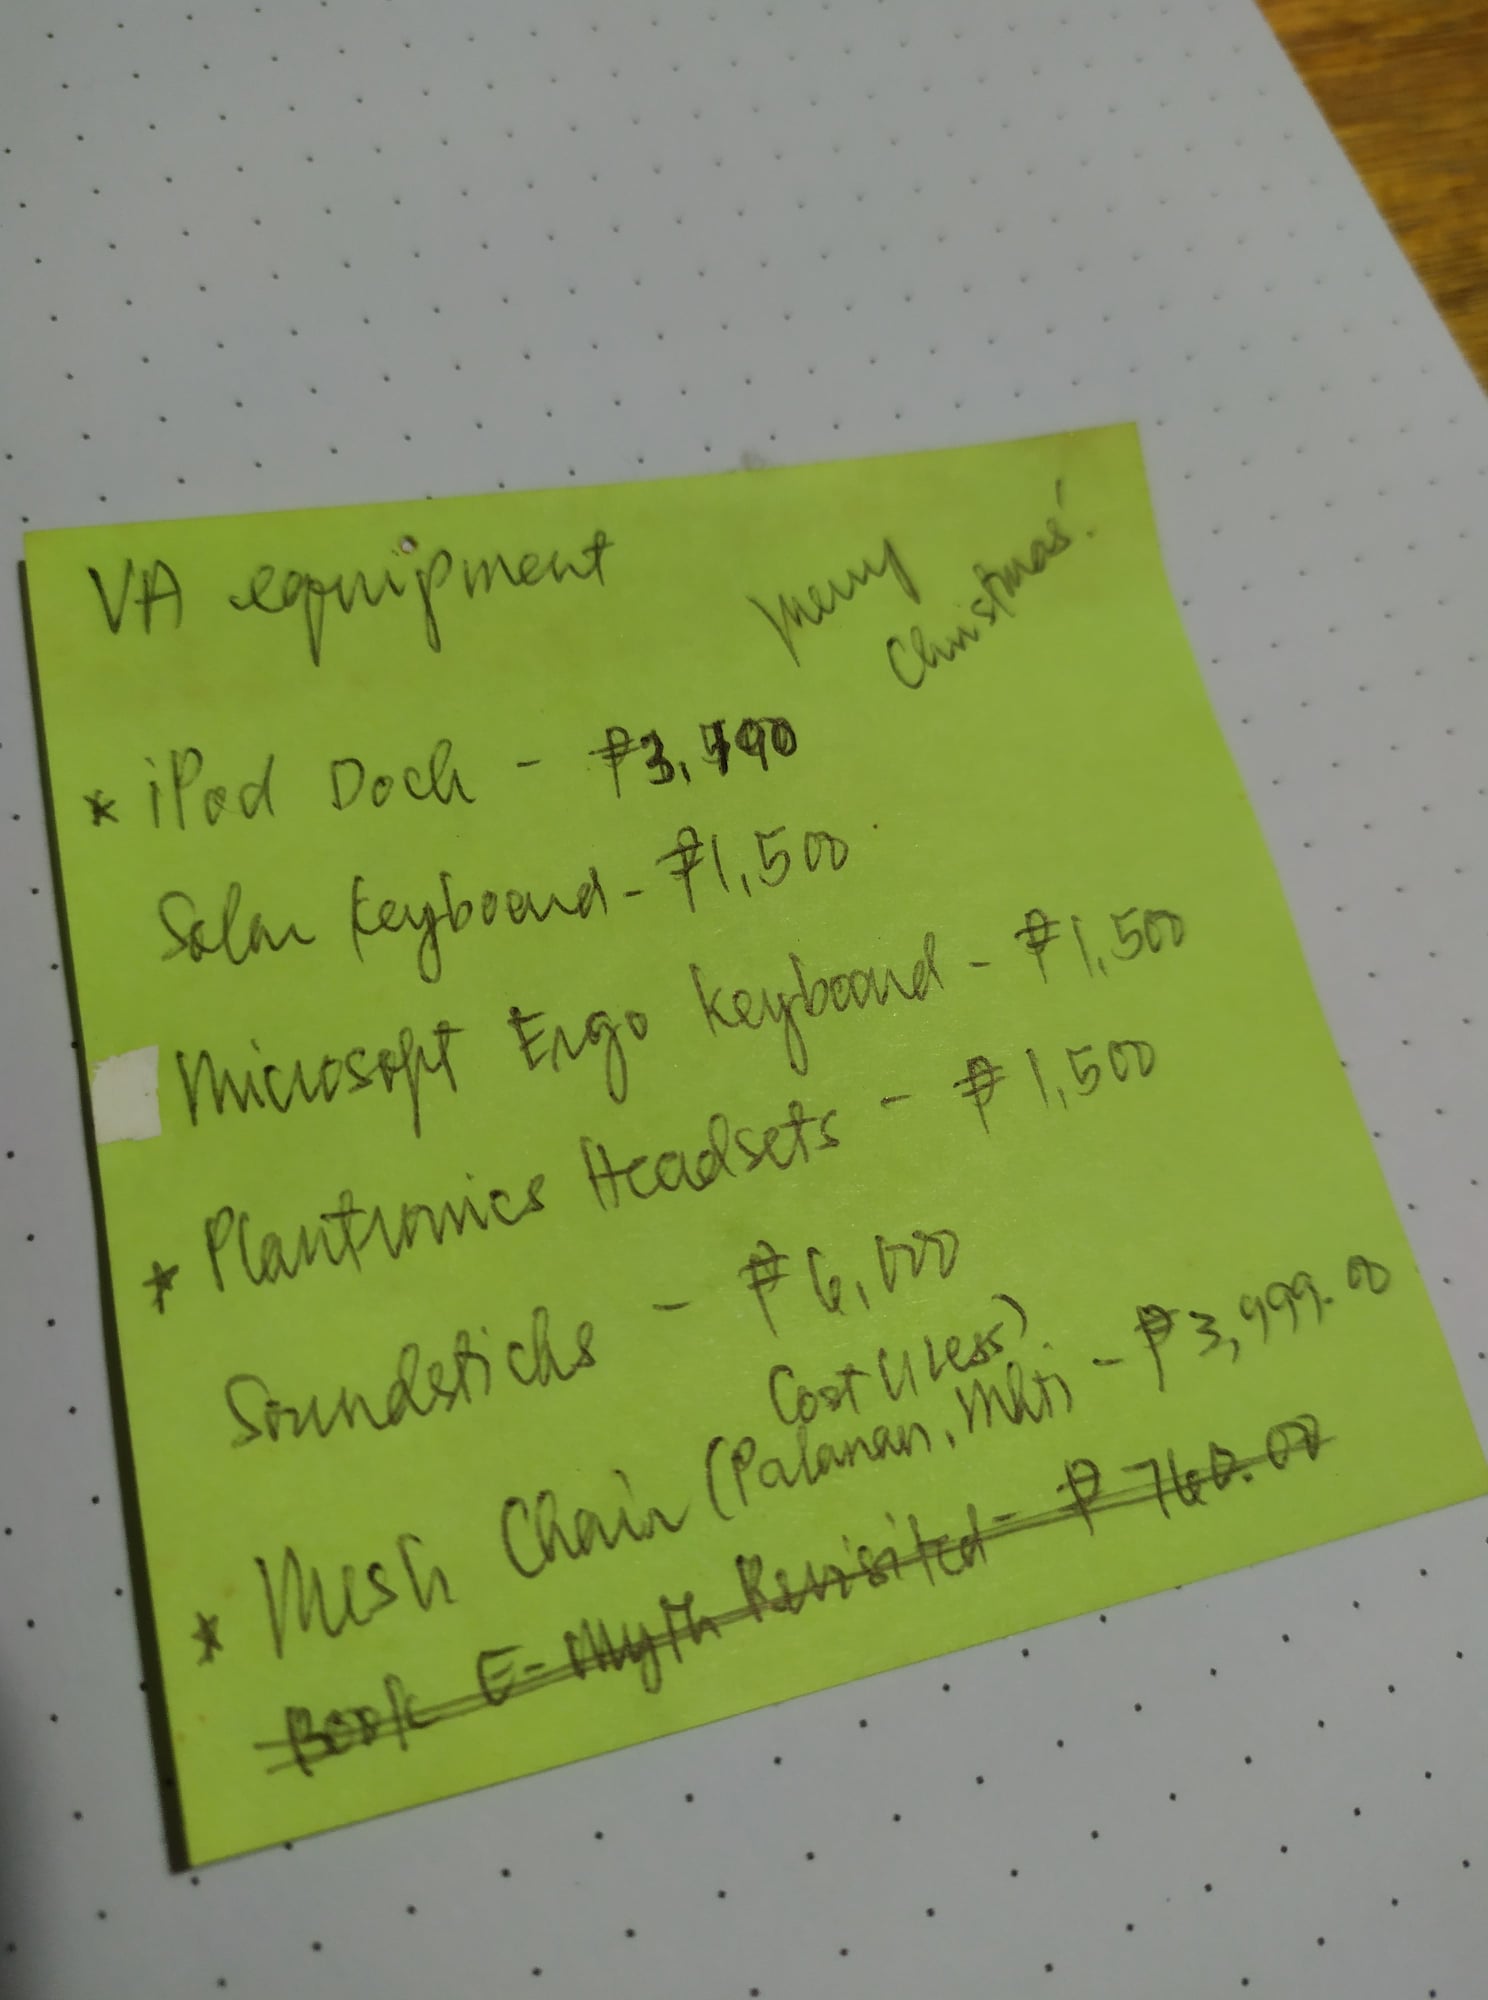 VA equipment
Merry
Christmas!
* iPod Dock - ₱3,790
Solar Keyboard - ₱1,500
Microsoft Ergo Keyboard - ₱1,500
* Plantronics Headsets - ₱1,500
Soundsticks - ₱6,000
Cost U Less)
* Mesh Chair (Palanan, Mkti - ₱3,999.00
Book E-Myth Revisited - ₱760.00